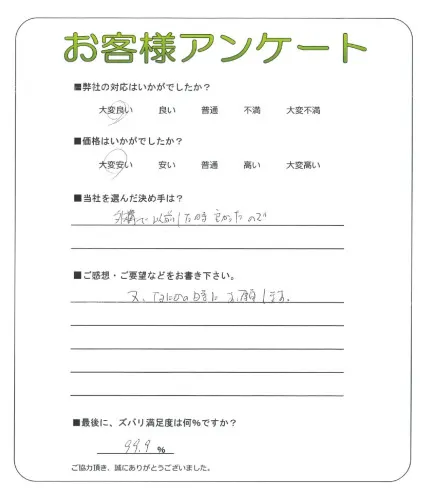 お客様アンケート
■弊社の対応はいかがでしたか？
大変良い 良い 普通 不満 大変不満
■価格はいかがでしたか？
大変安い 安い 普通 高い 大変高い
■当社を選んだ決め手は？
外構で以前した時良かったので
■ご感想・ご要望などをお書き下さい。
又、なにかの時にお願します。
■最後に、ズバリ満足度は何%ですか？
99.9 %
ご協力頂き、誠にありがとうございました。